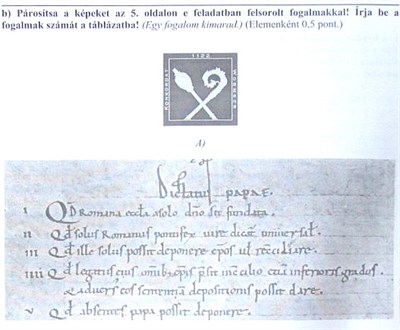 b) Párosítsa a képeket az 5. oldalon e feladatban felsorolt fogalmakkal! Írja be a
fogalmak számát a táblázatba! (Egy fogalom kimarad.) (Elemenként 0,5 pont.)
1122
KONKORDAT
WORMSER
A)
Dictatus papae.
I Qd Romana eccla a solo dño sit fundata.
II Qd solus Romanus pontifex iure dicat universal.
III Qd ille solus possit deponere epos ul reconciliare.
IIII Qd legatus eius omib; epis presit in concilio etiā inferioris gradus.
& adversus eos sententiam depositionis possit dare.
V Qd absentes papa possit deponere.